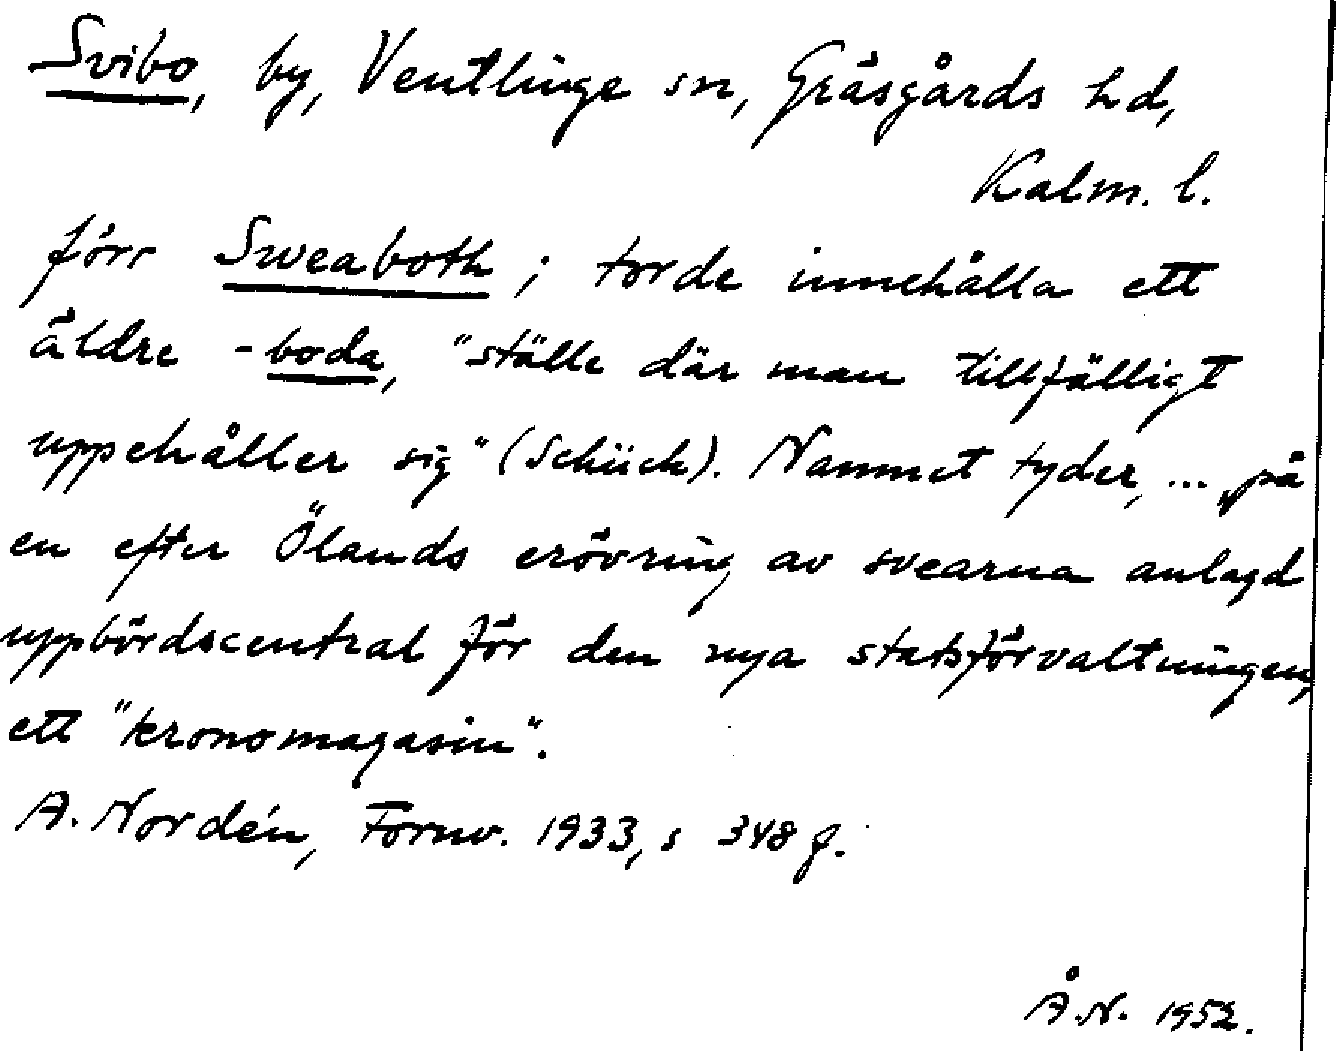 Svibo, by, Ventlinge sn, Gräsgårds hd,
Kalm. l.
förr Sweaboth; torde innehålla ett
äldre -boda, "ställe där man tillfälligt
uppehåller sig" (Schück). Namnet tyder, ... på
en efter Ölands erövring av svearna anlagd
uppbördscentral för den nya statsförvaltningen,
ett "kronomagasin".
A. Nordén, Fornv. 1933, s 348 f.
Å.N. 1952.